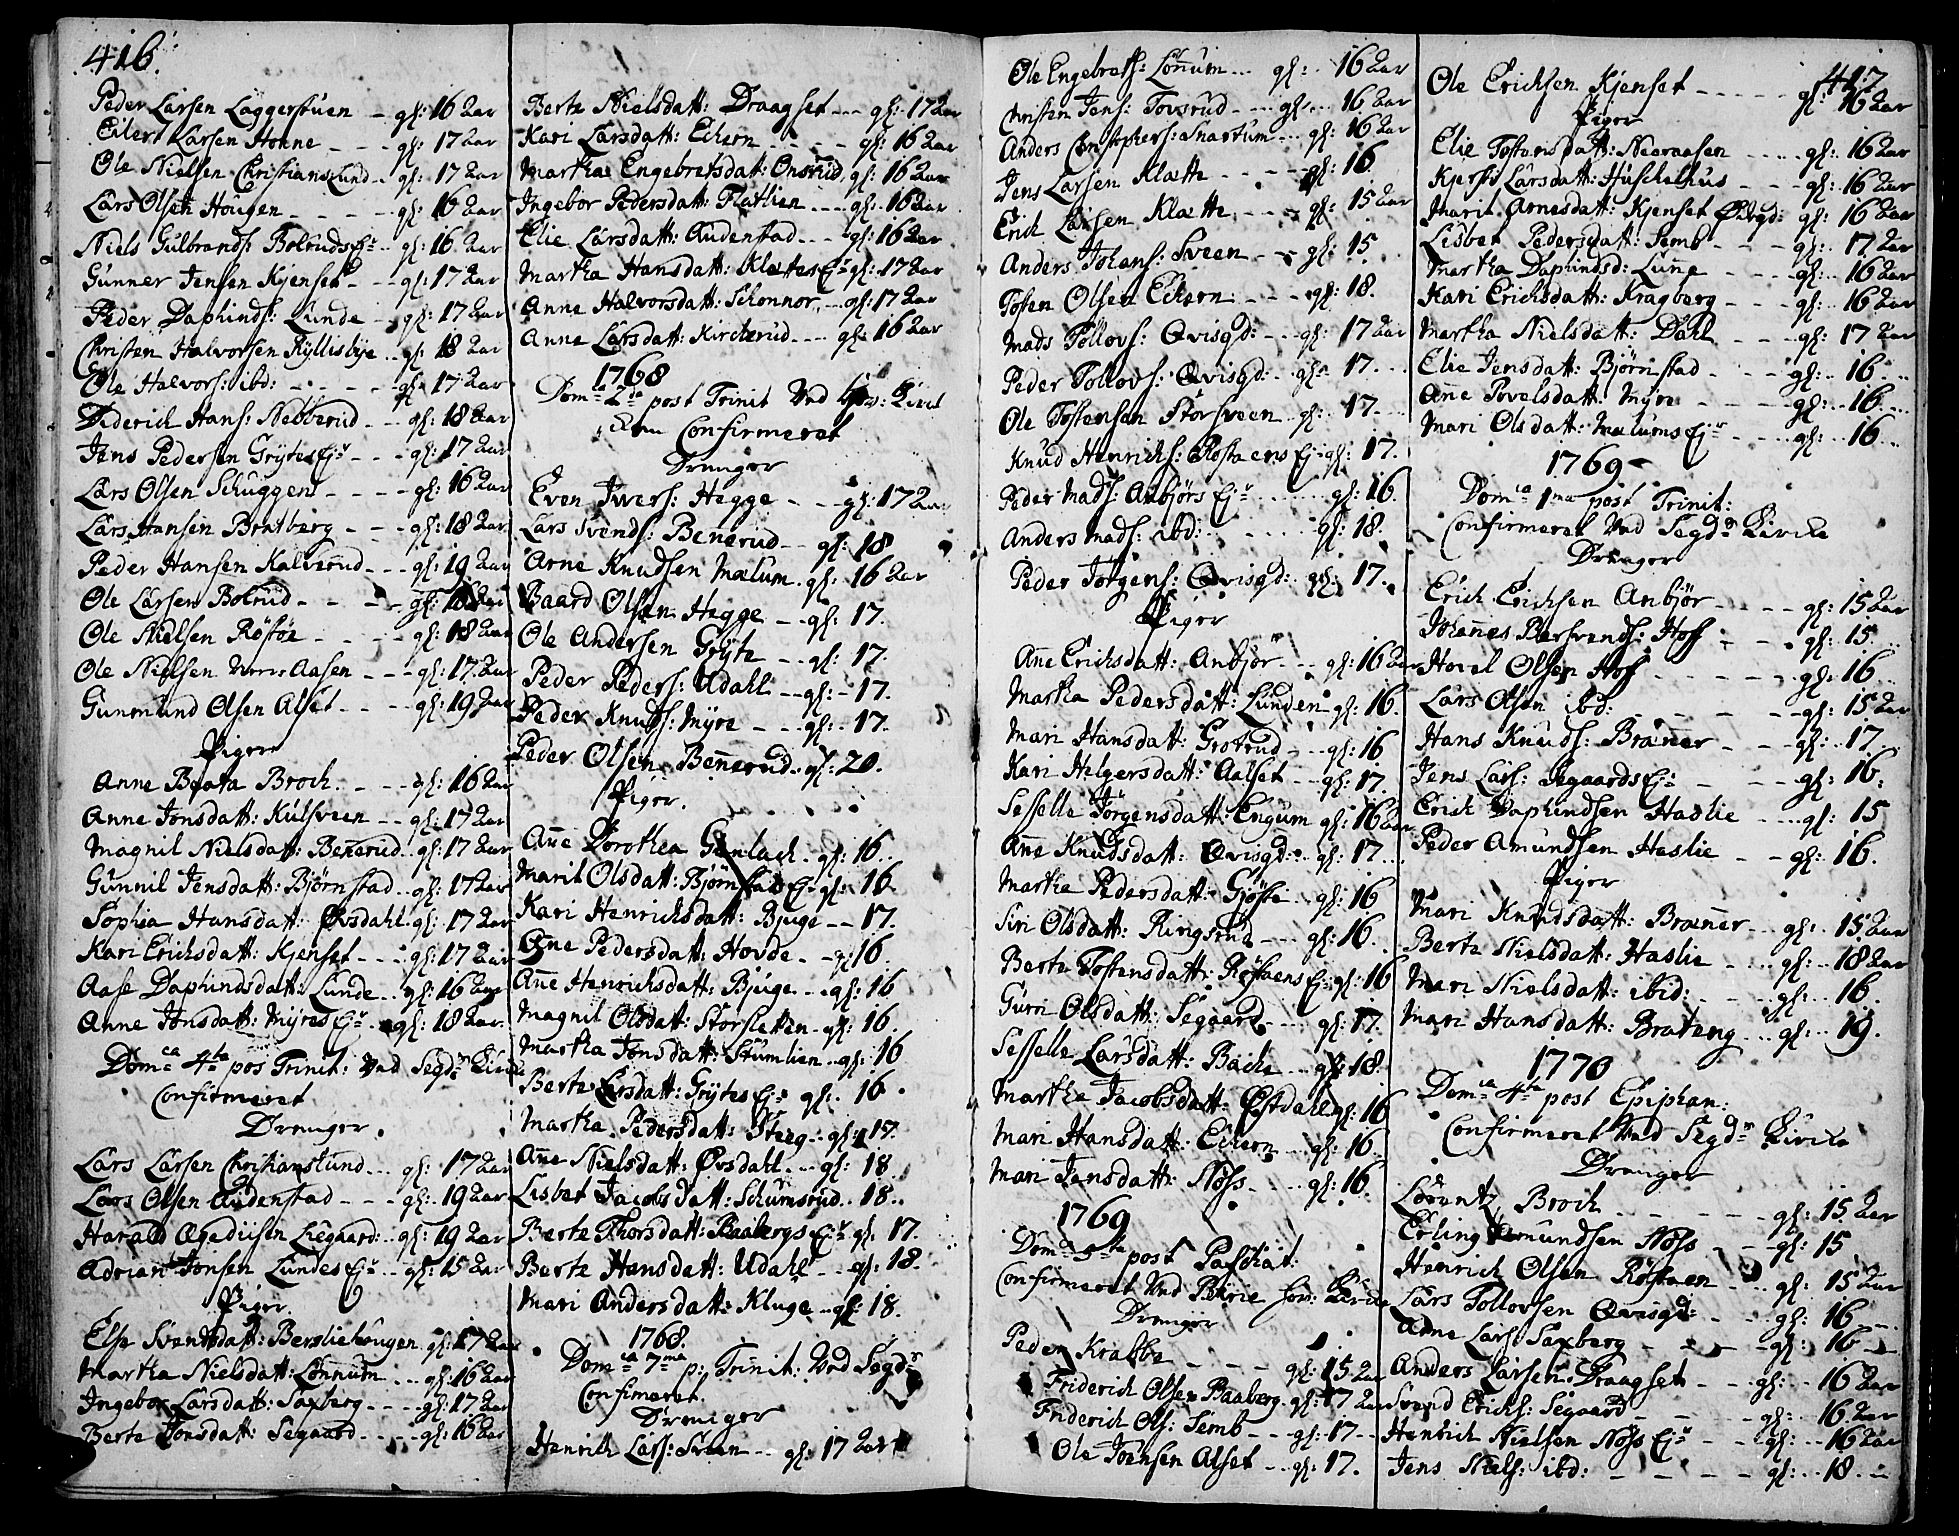 416.
Peder Larsen Laggerstuen - gl: 16 Aar
Eilert Larsen Honne - - - gl: 17 Aar
Ole Nielsen Christianslund - gl: 17 Aar
Lars Olsen Hougen - - - - gl: 16 Aar
Niels Gulbrands: Bolrudsej: - gl: 16 Aar
Gunner Jensen Kjenset - - gl: 17 Aar
Peder Daphinds: Lunde - gl: 17 Aar
Christen Halvorsen Kyllisbye - gl: 18 Aar
Ole Halvors: ibd: - - - - gl: 17 Aar
Diderich Hans: Nedberud - - gl: 18 Aar
Jens Pedersen Grÿtesej: - - - gl: 17 Aar
Lars Olsen Schuggen - - - - gl: 16 Aar
Lars Hansen Bratberg - - - gl: 18 Aar
Peder Hansen Kalverud - - - gl: 19 Aar
Ole Larsen Bolrud - - - - gl: 18 Aar
Ole Nielsen Röstöe - - - - gl: 18 Aar
Ole Nielsen Aasen - - gl: 17 Aar
Gunmund Olsen Alset - - - gl: 19 Aar
Piger
Anne Beata Broch. - - - gl: 16 Aar
Anne Jonsdatt: Kulsveen - - gl: 17 Aar
Magnil Nielsdatt: Bennerud. gl: 17 Aar
Gunnil Jensdatt: Bjørnstad. gl: 17 Aar
Sophia Hansdatt: Øvsdahl gl: 17 Aar
Kari Erichsdatt: Kjenset - - - gl: 17 Aar
Aase Daphindsdatt: Lunde. gl: 16 Aar
Anne Jonsdatt: Myresej: - gl: 18 Aar.
Dom:ca 4:ta pos Trinit: Ved Segd: Kirke
Confirmeret
Drenger.
Lars Larsen Christianslund... gl: 17 Aar
Lars Olsen Audenstad - - - gl: 19 Aar
Harald Egediisen Liegaard: gl: 19 Aar
Adrian Jonsen Lundesej: - gl: 15 Aar
Piger.
Else Svendsdatt: Bersliehougen gl: 17 Aar
Martha Nielsdatt: Lonnum ... gl: 16 Aar
Ingebor Larsdatt: Saxberg - - - gl: 17 Aar
Berte Jonsdatt: Segaard - - - gl: 16 Aar
Berte Nielsdatt: Draagset - - gl: 17 Aar
Kari Larsdatt: Eckern - - - - gl: 16 Aar
Martha Engebretsdat: Onsrud gl: 16 Aar
Ingebor Pedersdatt: Flatlien - - gl: 16 Aar
Elie Larsdatt: Audenstad - - - gl: 16 Aar
Martha Hansdatt: Klættesej: gl: 17 Aar
Anne Halvorsdatt: Schonnor - gl: 17 Aar
Anne Larsdatt: Kircherud - - gl: 16 Aar
1768
Dom:ca 2:da post Trinit Ved Hov: Kirke
Confirmeret
Drenger
Even Iwers: Hegge - - - gl: 17 Aar
Lars Svends: Benerud - - gl: 18
Arne Knudsen Mælum. gl: 16 Aar
Baard Olsen Hegge - - gl: 17.
Ole Andersen Grÿte - - gl: 17.
Peder Peders: Udahl - - gl: - 17.
Peder Knuds: Myre - - gl: - 17.
Peder Olsen Bennerud. gl: 20.
Piger.
Anne Dorothea Gerlach. gl: 16.
Marit Olsdatt: Bjørnstadej: gl: 16
Kari Henrichsdatt: Bjuge - - 17.
Anne Pedersdatt: Hovde - - gl: 16.
Anne Henrichsdatt: Bjuge - - gl: 16
Magnil Olsdatt: Storsletten - gl: 16.
Martha Jonsdatt: Stumlien - gl: 16
Berte Larsdatt: Grÿtesej: gl: 16 .
Martha Pedersdatt: Steeg - gl: 17.
Anne Nielsdatt: Øvsdahl - - gl: 18
Lisbet Jacobsdatt: Schumsrud. 18.
Berte Thorsdatt: Baabergsej: gl: 17.
Berte Hansdatt: Udahl - - gl: 18.
Mari Andersdatt: Kluge - gl: 18.
1768.
Dom:ca 7:ma p: Trinit: Ved Segd:
Confirmeret
Drenger
Henrich Lars: Sveen - - gl: 17 Aar
Ole Engebrets: Lönnum ... gl: 16 Aar
Christen Jens: Tovsrud - - - gl: 16 Aar
Anders Christophers: Snartum - - gl: 16 Aar
Jens Larsen Klætte - - - - gl: 16.
Erich Larsen Klætte - - - gl: 15 Aar
Anders Johans: Sveen - - gl: 15.
Tosten Olsen Eckern - - - gl: 18.
Mads Tollovs: Qvisgd: - - gl: 17 Aar
Peder Tollovs: Qvisgd: - - gl: 17. ...
Ole Tostensen Storsveen gl: 17. ...
Knud Henrichs: Röstaensej: gl: 17.
Peder Mads: Anbjörsej: ...... gl: 16.
Anders Mads: ibd: ...... gl: 18.
Peder Jörgens: Qvisgd: gl: 17.
Piger
Anne Erichsdatt: Anbjör - - gl: 16 Aar
Martha Pedersdatt: Lunden gl: 16.
Mari Hansdatt: Grotrud - - gl: 16
Kari Helgersdatt: Aalset - - gl: 17.
Seselle Jörgensdatt: Engum gl: 16 Aar
Anne Knudsdatt: Qvisgd: - - gl: 17 ...
Martha Pedersdatt: Gjöste - gl: 16
Siri Olsdatt: Ringsrud - - - gl: 16.
Berte Tostensdatt: Röstaensej: gl: 16
Guri Olsdatt: Segaard - - - gl: 17.
Seselle Larsdatt: Bache - - gl: 18.
Martha Jacobsdatt: Østdahl gl: 16
Mari Hansdatt: Eckern - - gl: 16.
Mari Jensdatt: Nöss - - - gl: 16.
1769
Dom:ca 5:ta post Paschat:
Confirmeret Ved Hov: Kirke
Drenger
Peder Krabbe - - - - gl: 15 Aar
Friderich Olsen Baaberg. gl: 17 Aar
Friderich Ols: Semb - - gl: 17 - -
Ole Joensen Alset - - gl: 17.
417
Ole Erichsen Kjenset - - - - - gl: 16 Aar
Piger
Elie Tostensdatt: Neeraasen ..... gl: 16 Aar
Kjersti Larsdatt: Huschelhus - - - gl: 16 Aar
Marit Arnesdatt: Kjenset gl: 16 Aar
Lisbet Pedersdatt: Semb - - - gl: 17. Aar
Martha Daphindsd: Lunne - - - gl: 16 Aar
Kari Erichsdatt: Kragberg - - gl: 16 Aar
Martha Nielsdatt: Dahl - - - gl: 17 Aar
Elie Jensdatt: Bjørnstad - - - gl: 16 ...
Anne Povelsdatt: Myre - - - - gl: 16 ...
Mari Olsdatt: Mælumsej: - - - gl: 16 ...
1769 -
Dom:ca 1:ma post Trinit:
Confirmeret Ved Segd: Kircke
Drenger
Erich Erichsen Anbjör - - - - gl: 15 Aar
Johannes Bersvends: Hoff - - gl: 15. ...
Hovel Olsen Hoff - - - - - - gl: 16 ...
Lars Olsen ibd: - - - - - - gl: 15 Aar
Hans Knuds: Brænner - - - - gl: 17.
Jens Lars: Segaardsej: - - - gl: 16.
Erich Daphindsen Haslie - - - gl: 15
Peder Amundsen Haslie - - gl: 16.
Piger
Mari Knudsdatt: Brænner - - gl: 15. Aar
Berte Nielsdatt: Haslie - - - gl: 18 Aar
Mari Nielsdatt: ibid: - - - - gl: 16.
Mari Hansdatt: Brateng ... gl: 19.
1770
Dom:ca 4:ta post Epiphan:
Confirmeret Ved Segd: Kircke
Drenger
Lorentz Broch - - - - - - gl: 15 Aar
Erling Amundsen Nöss - - - gl: 15
Henrich Olsen Röstaen - - gl: 15 Aar
Lars Tollovsen Qvisgd: - - gl: 16 - -
Arne Lars: Saxberg - - - - gl: 16 -
Anders Larsen Draagset - - gl: 16 Aar
Svend Erichs: Segaard - - - gl: 16 Aar
Henrich Nielsen Nössej: - - gl: 16 Aar
Jens Niels: ibd: - - - - gl: 18. -